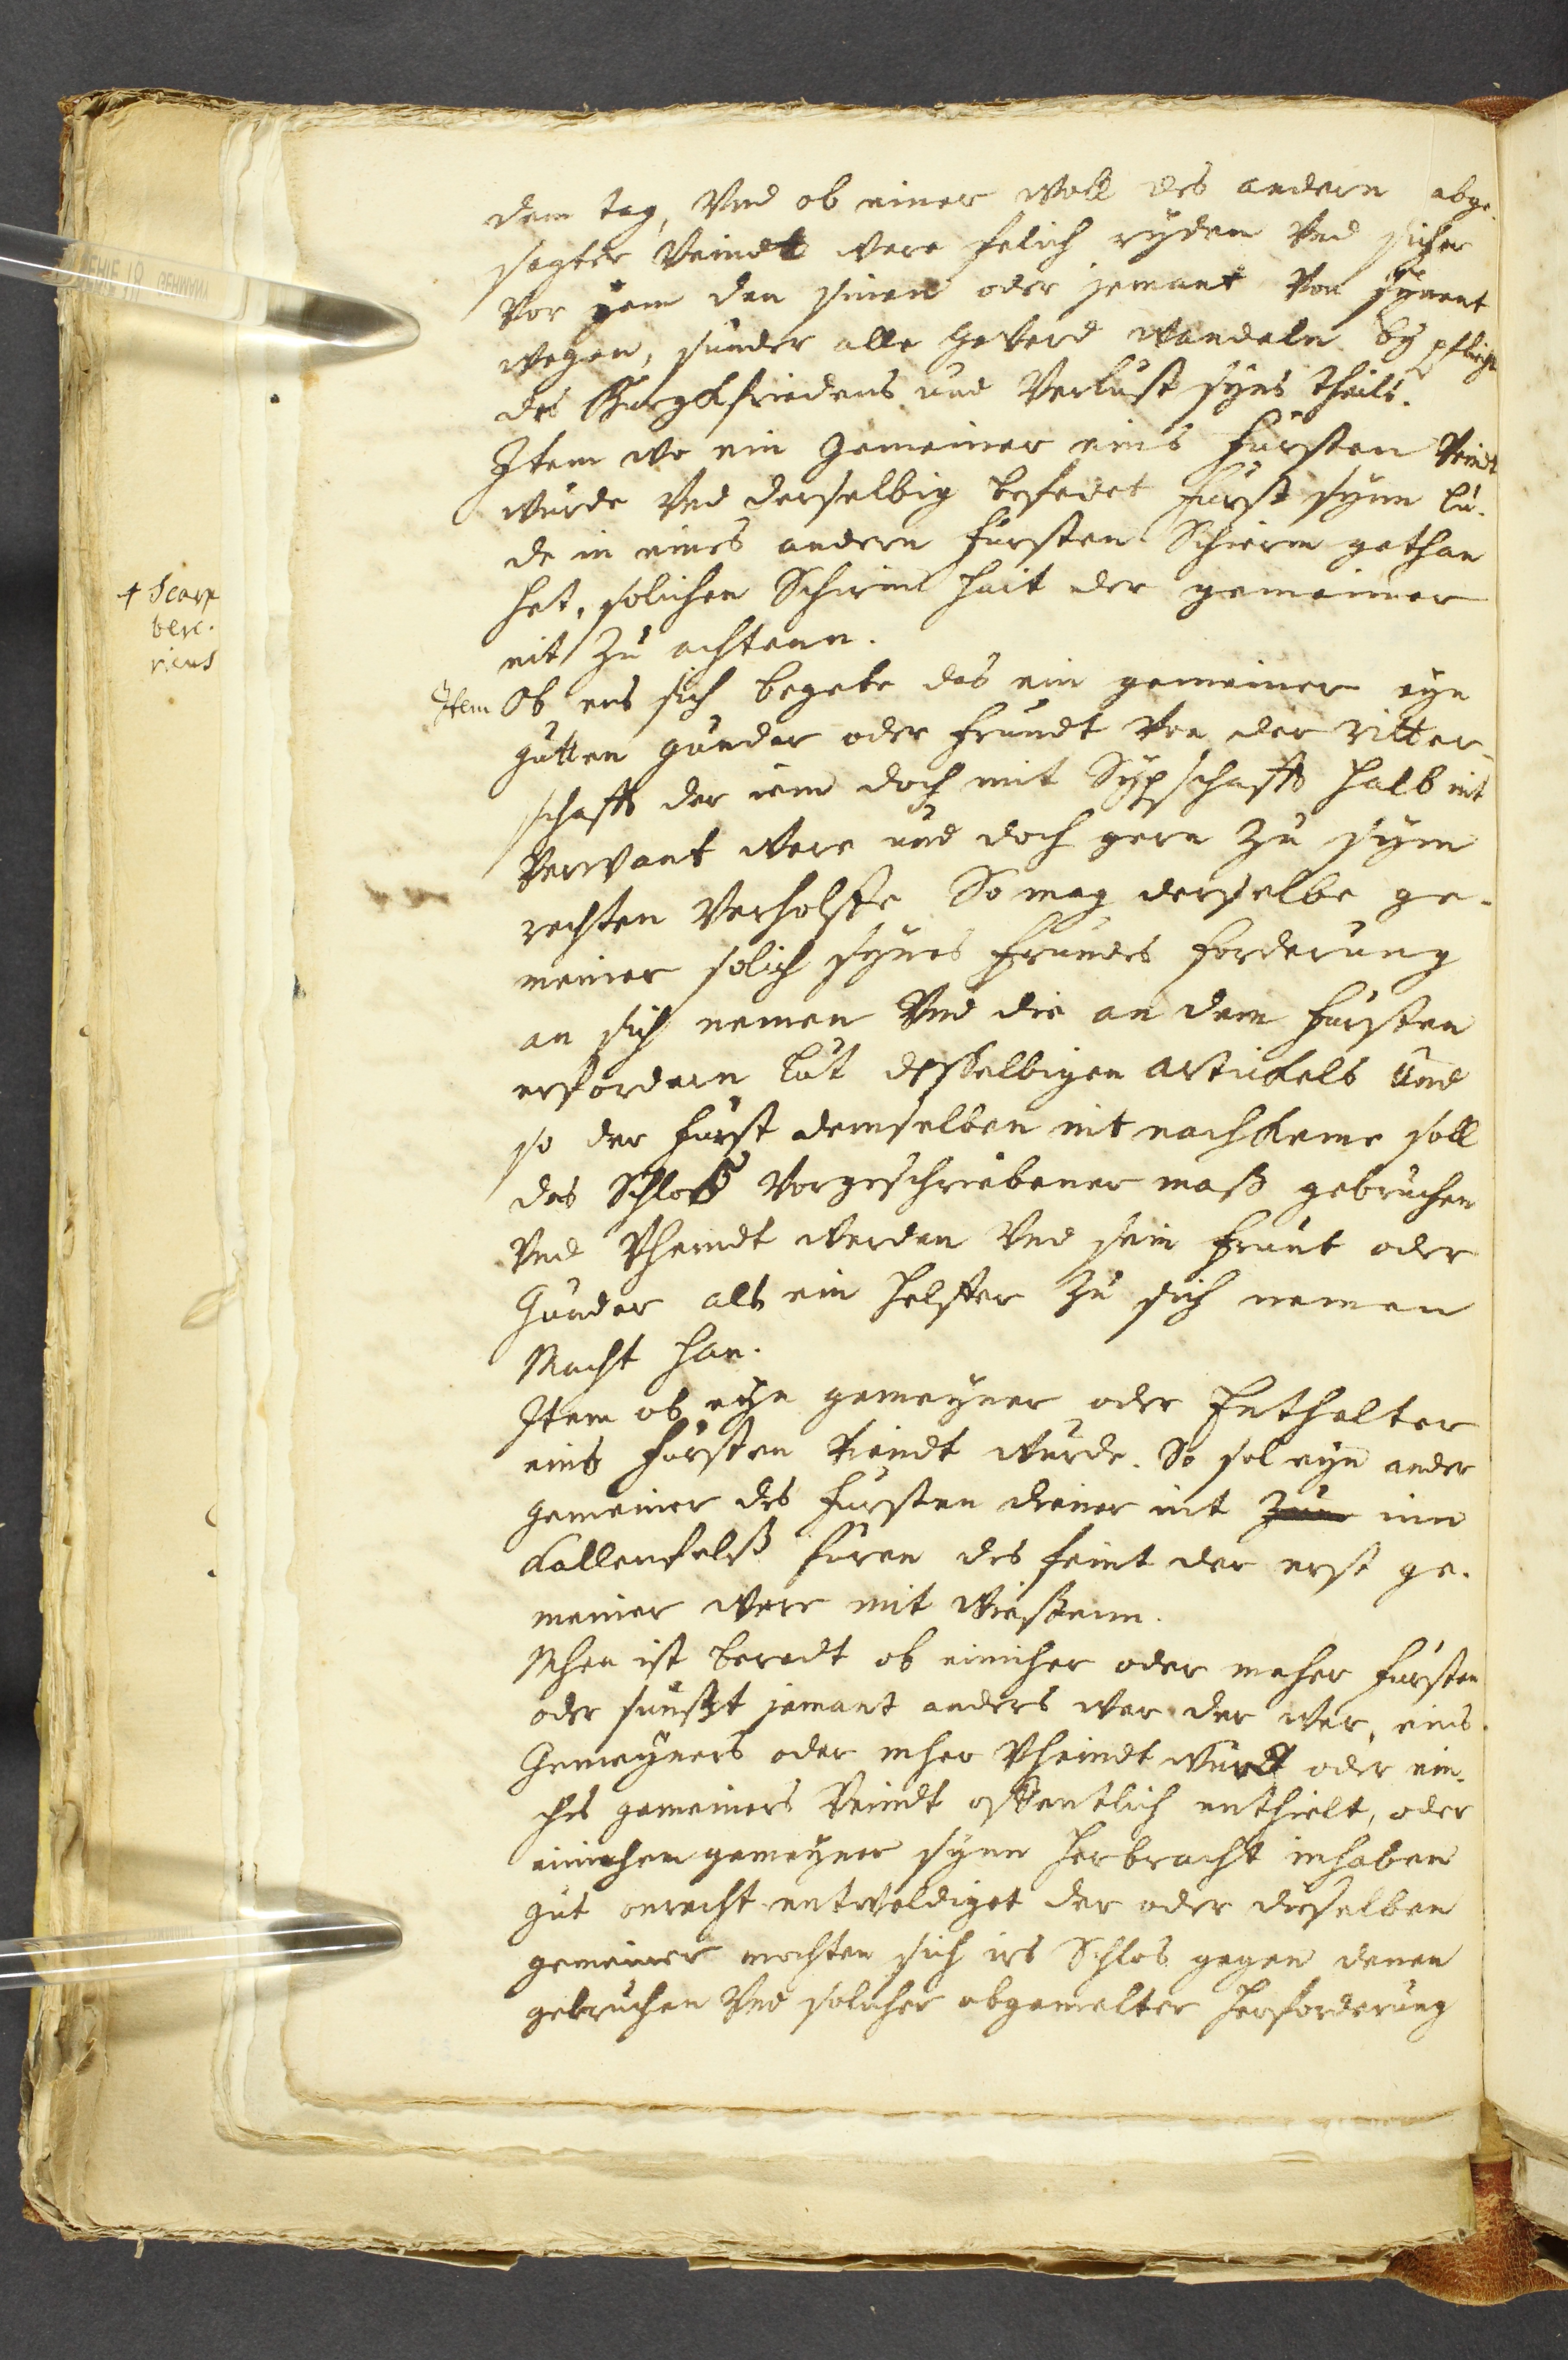 dem tag, Vnd ob einer woll des andern abge-
sagter Veindt were felich ryden Vnd sicher
Vor yem den sinen oder jemant Von synent
wegen, sunder alle geverd wandeln by pflicht
des Burgkfriedens und Verlust syns theils.
Item wo ein Gemeiner eins fursten Veindt
wurde Vnd derselbig befedet furst synn lu-
de in eines andern fursten Schierm gethan
het, solichen Schirm hait der gemeiner
nit zu achtenn.
Item Ob ens sich begebe das ein gemeiner eyn
gutten gunder oder frundt von der ritter-
schafft der iem doch mit Sypschafft halb nit
verwant were und doch gern zu sym
rechten Verholffe So mag derselbe ge-
meiner solich synes frundes forderung
an sich nemen Vnd die an dem fursten
erfordern lut desselbigen artickels und
so der furst demselben nit nachkeme soll
das Schloß Vorgeschriebener maß gebruchen
Vnd Vheindt werden Vnd sein frunt oder
Gunder als ein helffer zu sich nemen
Macht han.
Item ob eyn gemeyner oder Enthalter
eins fursten Veindt wurde. So sol eyn ander
gemeiner des fursten diener nit inn
Kallenfelß furen des feint der erst ge-
meiner were mit wießenn.
Mhen ist beredt ob einicher oder meher fursten
oder sunßt jemant anders wer der wer, eins
Gemeyners oder mher Vheindt wurdt oder ein-
chs gemeiners Veindt offentlich enthielt, oder
einichen gemeyner synn herbracht inhaben
gut onrecht entweldiget der oder dieselben
gemeiner mochten sich irs Schlos gegen denen
gebruchen Vnd solicher obgemelter herforderung
+ Scarp
berc.
ricus